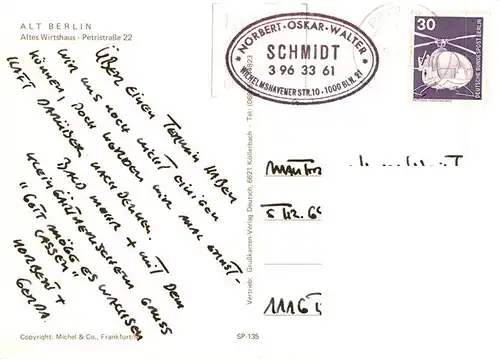 ALT BERLIN
Altes Wirtshaus · Petristraße 22
ÜBER EINEN TERMIN HABEN
WIR UNS NOCH NICHT EINIGEN
KÖNNEN, DOCH WERDEN WIR MAL ERNST-
HAFT DARÜBER NACHDENKEN.
BALD MEHR + MIT DEM
KLEINGÄRTNERISCHEN GRUSS
"GOTT MÖGE ES WACHSEN
LASSEN"
NORBERT +
GERDA.
Copyright: Michel & Co., Frankfurt/M
SP-135
Vertrieb: Grußkarten-Verlag Deutsch, 6621 Köllerbach
NORBERT · OSKAR · WALTER
SCHMIDT
3 96 33 61
WILHELMSHAVENER STR. 10 · 1000 BLN. 21
30
DEUTSCHE BUNDESPOST BERLIN